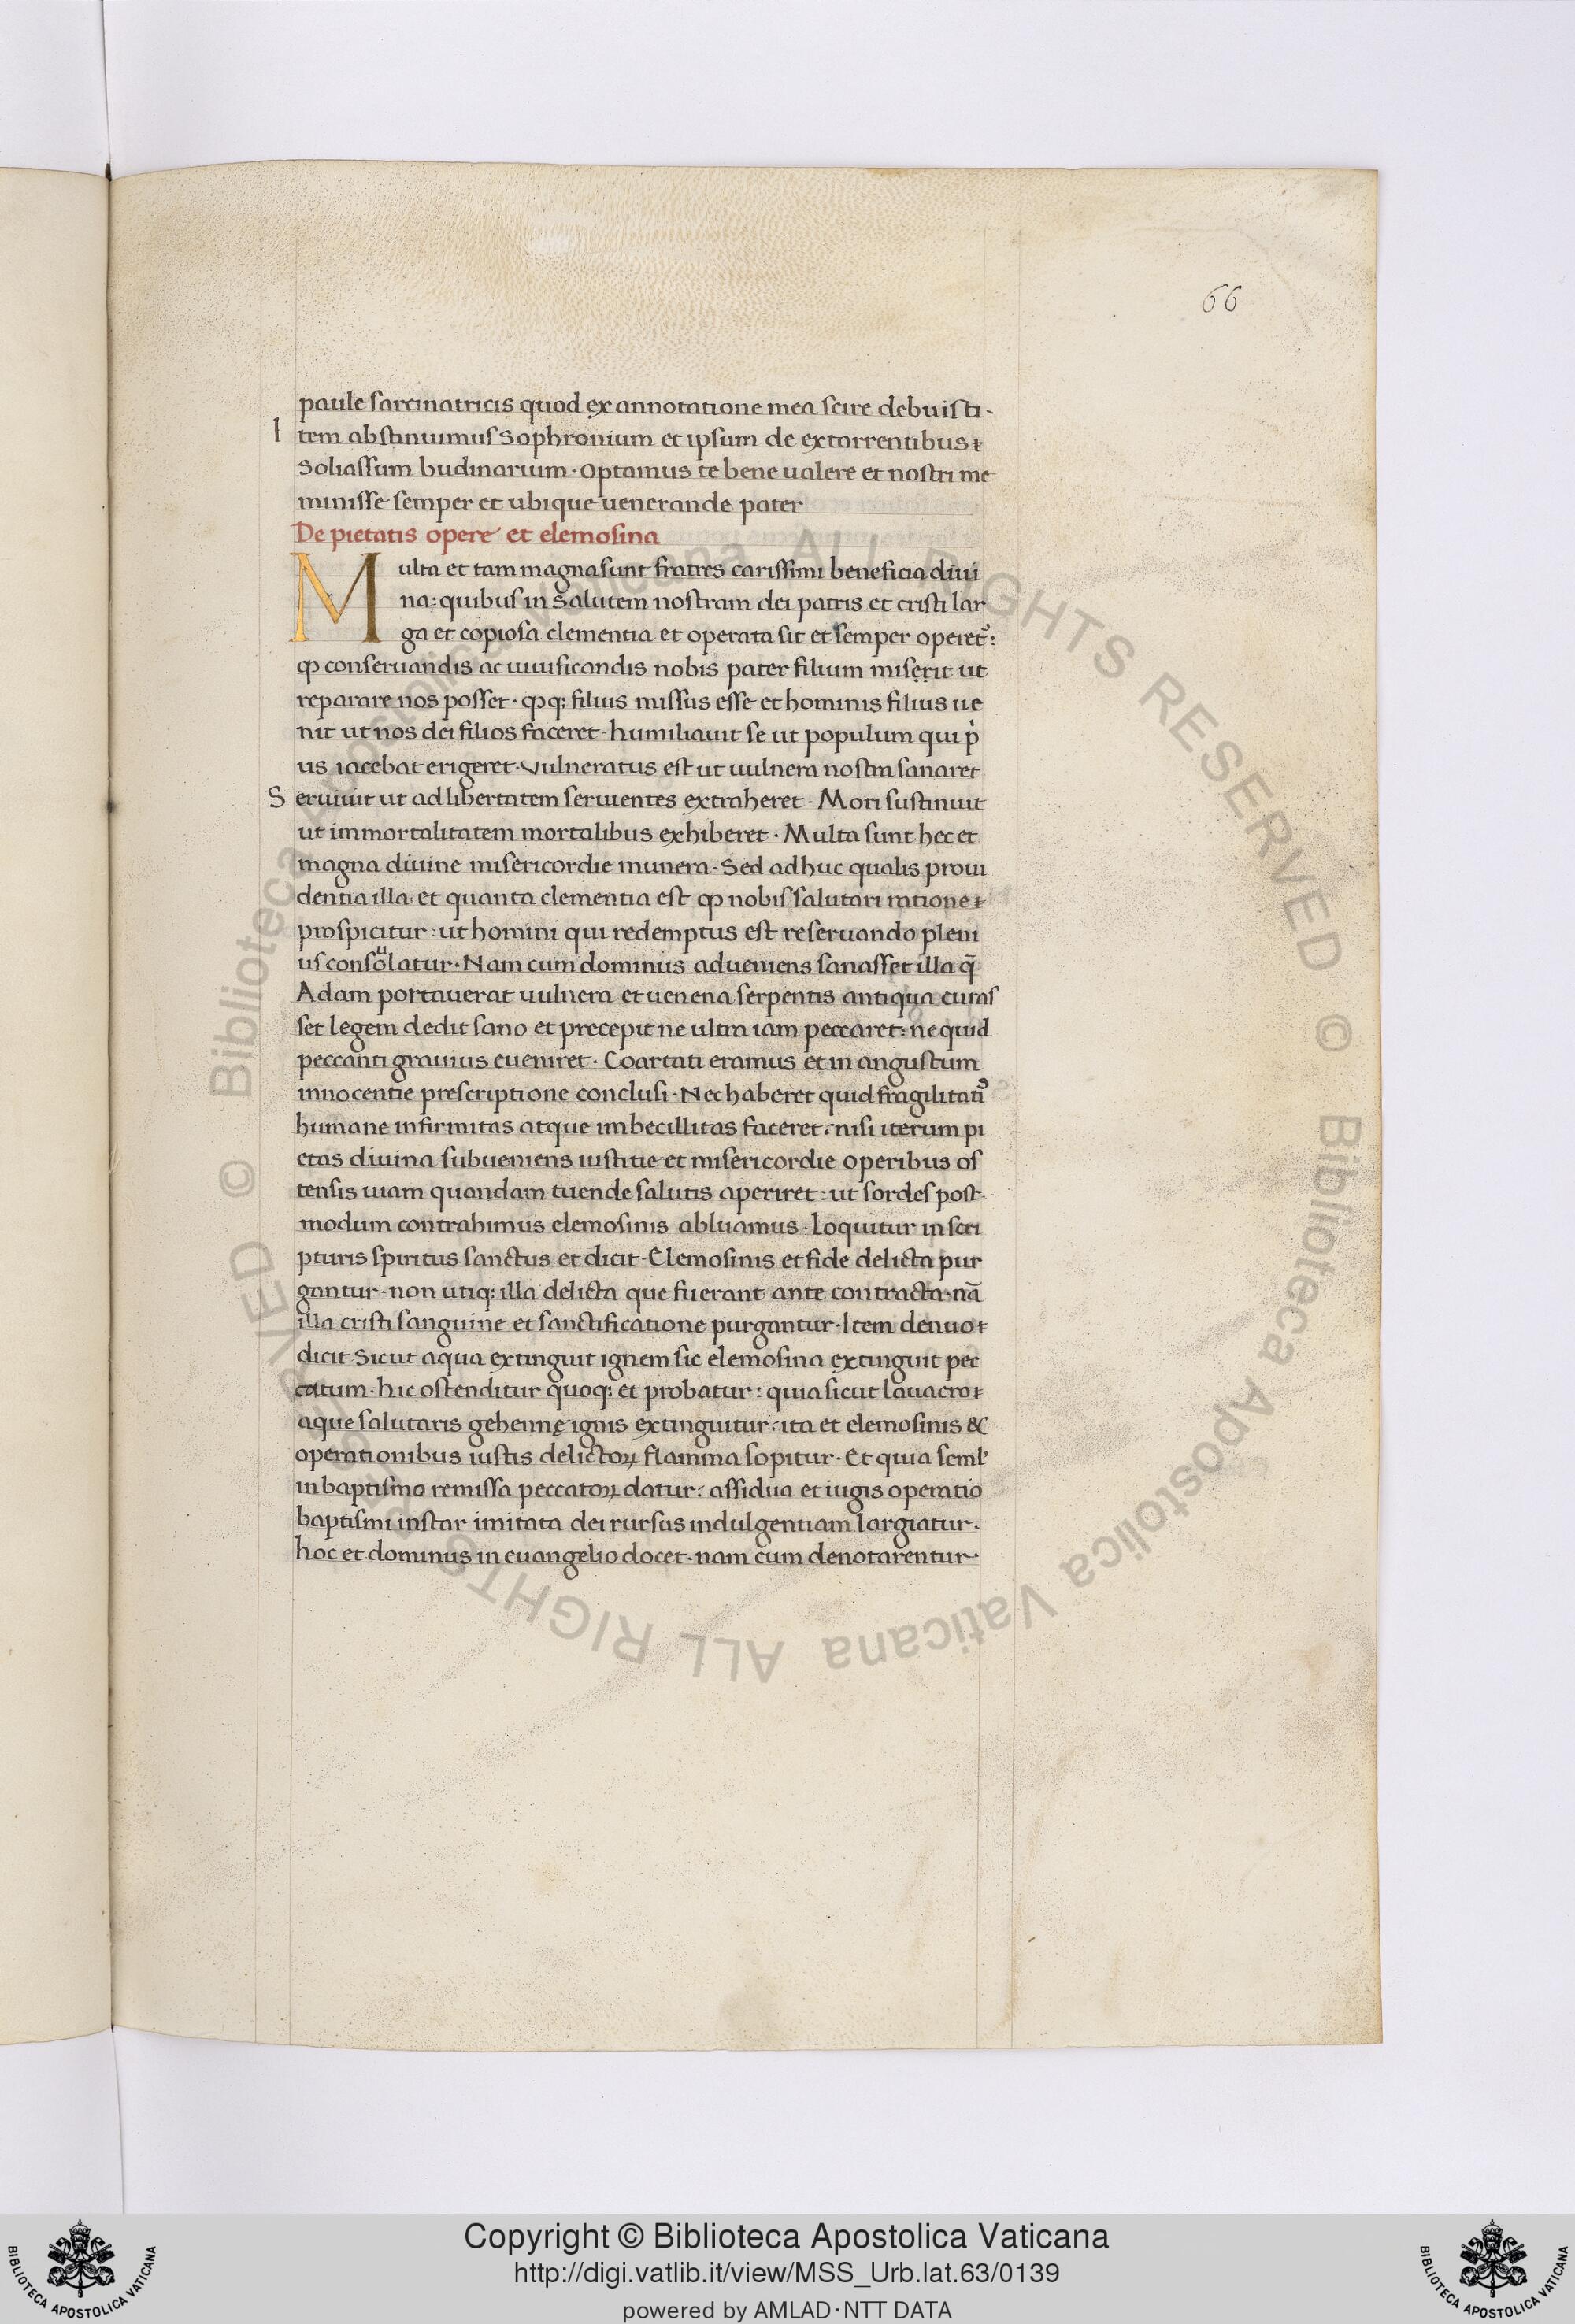 66
paule sarcinatricis quod ex annotatione mea scire debuisti·
I tem abstinuimus Sophronium et ipsum de extorrentibus
Soliassum budinarium· Optamus te bene ualere et nostri me
minisse semper et ubique uenerande pater
De pietatis opere et elemosina
Multa et tam magna sunt fratres carissimi beneficia diui
na: quibus in Salutem nostram dei patris et cristi lar
ga et copiosa clementia et operata sit et semper operet᷒:
ꝙ conseruandis ac uiuificandis nobis pater filium miserit ut
reparare nos posset· ꝙq: filius missus esse et hominis filius ue
nit ut nos dei filios faceret· humiliauit se ut populum qui p̍
us iacebat erigeret· Vulneratus est ut uulnera nostra sanaret
S eruiuit ut ad libertatem seruientes extraheret· Mori sustinuit
ut immortalitatem mortalibus exhiberet· Multa sunt hec et
magna diuine misericordie munera· Sed adhuc qualis proui
dentia illa· et quanta clementia est ꝙ nobis salutari ratione
prospicitur: ut homini qui redemptus est reseruando pleni
us consoulatur· Nam cum dominus adueniens sanasset illa q̄
Adam portauerat uulnera et uenena serpentis antiqua curas
set legem dedit sano et precepit ne ultra iam peccaret: ne quid
peccanti grauius eueniret· Coartati eramus et in angustum
innocentie prescriptione conclusi· Nec haberet quid fragilitatiꝰ
humane infirmitas atque imbecillitas faceret: nisi iterum pi
etas diuina subueniens iustitie et misericordie operibus os
tensis uiam quandam tuende salutis aperiret: ut sordes post
modum contrahimus elemosinis abluamus· Loquitur in scri
pturis spiritus sanctus et dicit· Elemosinis et fide delicta pur
gantur· non utiq: illa delicta que fuerant ante contracta· nā
illa cristi sanguine et sanctificatione purgantur· Item denuo
dicit Sicut aqua extinguit ignem sic elemosina extinguit pec
catum· hic ostenditur quoq: et probatur: quia sicut lauacro
aque salutaris gehennę ignis extinguitur: ita et elemosinis &
operationibus iustis delictoꝝ flamma sopitur· Et quia seml'
in baptismo remissa peccatoꝝ datur: assidua et iugis operatio
baptismi instar imitata dei rursus indulgentiam largiatur·
hoc et dominus in euangelio docet· nam cum denotarentur·
© Biblioteca Apostolica Vaticana ALL RIGHTS RESERVED © Biblioteca Apostolica Vaticana ALL RIGHTS RESERVED
Copyright © Biblioteca Apostolica Vaticana
http://digi.vatlib.it/view/MSS_Urb.lat.63/0139
powered by AMLAD·NTT DATA
BIBLIOTECA APOSTOLICA VATICANA
BIBLIOTECA APOSTOLICA VATICANA